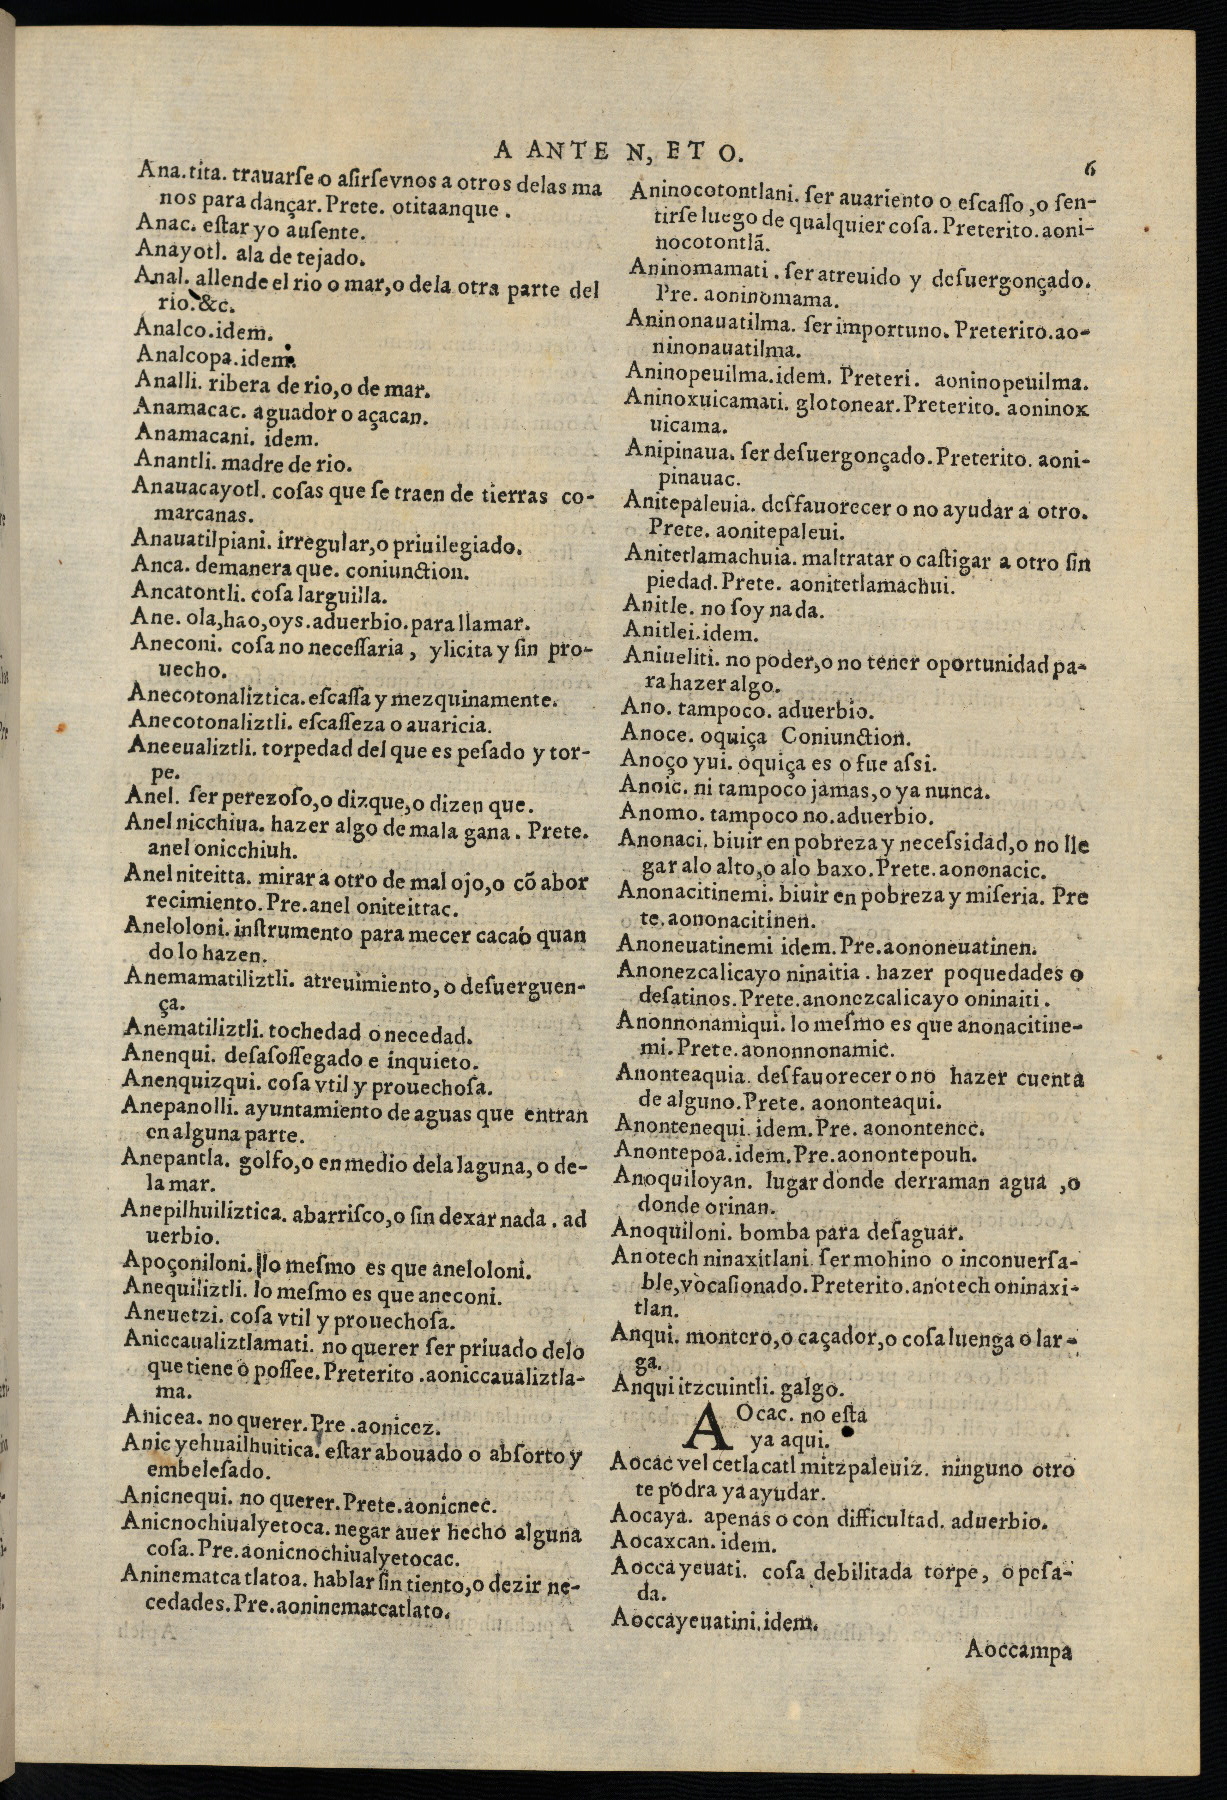 A ANTE N, ET O.
6
Ana. tita. trauarſe o aſirſe vnos a otros delas ma
nos para dançar. Prete. otitaanque.
Anac. eſtar yo auſente.
Anayotl. ala de tejado.
Anal. allende el rio o mar, o dela otra parte del
rio. &c.
Analco. idem.
Analcopa. idem.
Analli. ribera de rio, o de mar.
Anamacac. aguador o açacan.
Anamacani. idem.
Anantli. madre de rio.
Anauacayotl. coſas que ſe traen de tierras co-
marcanas.
Anauatilpiani. irregular, o priuilegiado.
Anca. demanera que. coniunction.
Ancatontli. coſa larguilla.
Ane. ola, hao, oys. aduerbio. para llamar.
Aneconi. coſa no neceſſaria, ylicita y ſin pro-
uecho.
Anecotonaliztica. eſcaſſa y mezquinamente.
Anecotonaliztli. eſcaſſeza o auaricia.
Aneeualiztli. torpedad del que es peſado y tor-
pe.
Anel. ſer perezoſo, o dizque, o dizen que.
Anel nicchiua. hazer algo de mala gana. Prete.
anel onicchiuh.
Anel niteitta. mirar a otro de mal ojo, o cõ abor
recimiento. Pre. anel oniteittac.
Aneloloni. inſtrumento para mecer cacao quan
do lo hazen.
Anemamatiliztli. atreuimiento, o deſuerguen-
ça.
Anematiliztli. tochedad o necedad.
Anenqui. deſaſoſſegado e inquieto.
Anenquizqui. coſa vtil y prouechoſa.
Anepanolli. ayuntamiento de aguas que entran
en alguna parte.
Anepantla. golfo, o en medio dela laguna, o de-
la mar.
Anepilhuiliztica. abarriſco, o ſin dexar nada. ad
uerbio.
Apoçoniloni. lo meſmo es que aneloloni.
Anequiliztli. lo meſmo es que aneconi.
Aneuetzi. coſa vtil y prouechoſa.
Aniccaualiztlamati. no querer ſer priuado delo
que tiene o poſſee. Preterito. aoniccaualiztla-
ma.
Anicea. no querer. Pre. aonicez.
Anic yehuailhuitica. eſtar abouado o abſorto y
embeleſado.
Anicnequi. no querer. Prete. aonicnec.
Anicnochiualyetoca. negar auer hecho alguna
coſa. Pre. aonicnochiualyetocac.
Aninematca tlatoa. hablar ſin tiento, o dezir ne-
cedades. Pre. aoninematcatlato.
Aninocotontlani. ſer auariento o eſcaſſo, o ſen-
tirſe luego de qualquier coſa. Preterito. aoni-
nocotontlã.
Aninomamati. ſer atreuido y deſuergonçado.
Pre. aoninomama.
Aninonauatilma. ſer importuno. Preterito. ao-
ninonauatilma.
Aninopeuilma. idem. Preteri. aoninopeuilma.
Aninoxuicamati. glotonear. Preterito. aoninox
uicama.
Anipinaua. ſer deſuergonçado. Preterito. aoni-
pinauac.
Anitepaleuia. desfauorecer o no ayudar a otro.
Prete. aonitepaleui.
Anitetlamachuia. maltratar o caſtigar a otro ſin
piedad. Prete. aonitetlamachui.
Anitle. no ſoy nada.
Anitlei. idem.
Aniueliti. no poder, o no tener oportunidad pa-
ra hazer algo.
Ano. tampoco. aduerbio.
Anoce. o quiça Coniunction.
Anoço yui. o quiça es o fue aſsi.
Anoic. ni tampoco jamas, o ya nunca.
Anomo. tampoco no. aduerbio.
Anonaci. biuir en pobreza y neceſsidad, o no lle
gar alo alto, o alo baxo. Prete. aononacic.
Anonacitinemi. biuir en pobreza y miſeria. Pre
te. aononacitinen.
Anoneuatinemi idem. Pre. aononeuatinen.
Anonezcalicayo ninaitia. hazer poquedades o
deſatinos. Prete. anonezcalicayo oninaiti.
Anonnonamiqui. lo meſmo es que anonacitine-
mi. Prete. aononnonamic.
Anonteaquia. desfauorecer o no hazer cuenta
de alguno. Prete. aononteaqui.
Anontenequi. idem. Pre. aonontenec.
Anontepoa. idem. Pre. aonontepouh.
Anoquiloyan. lugar donde derraman agua, o
donde orinan.
Anoquiloni. bomba para deſaguar.
Anotech ninaxitlani. ſer mohino o inconuerſa-
ble, vocaſionado. Preterito. anotech oninaxi-
tlan.
Anqui. montero, o caçador, o coſa luenga o lar-
ga.
Anqui itzcuintli. galgo.
AOcac. no eſta
ya aqui.
Aocac vel cetlacatl mitzpaleuiz. ninguno otro
te podra ya ayudar.
Aocaya. apenas o con difficultad. aduerbio.
Aocaxcan. idem.
Aoccayeuati. coſa debilitada torpe, o peſa-
da.
Aoccayeuatini. idem.
Aoccampa